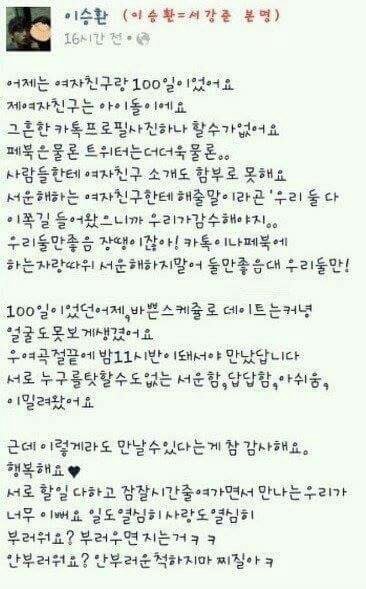 이승환 (이승환=서강준 본명)
16시간 전 •
어제는 여자친구랑 100일이었어요
제여자친구는 아이돌이에요
그흔한 카톡프로필사진하나 할수가없어요
페북은물론 트위터는더더욱물론..
사람들한테 여자친구 소개도 함부로 못해요
서운해하는 여자친구한테 해줄말이라곤 '우리 둘 다
이쪽길 들어왔으니까 우리가감수해야지..
우리둘만좋음 장땡이잖아! 카톡이나페북에
하는자랑따위 서운해하지말어 둘만좋음대 우리둘만!
100일이었던어제,바쁜스케쥴로 데이트는커녕
얼굴도못보게생겼어요
우여곡절끝에 밤11시반이돼서야 만났답니다
서로 누구를탓할수도없는 서운함,답답함,아쉬움,
이밀려왔어요
근데 이렇게라도 만날수있다는게 참 감사해요.
행복해요♥
서로 할일 다하고 잠잘시간줄여가면서 만나는우리가
너무 이뻐요 일도열심히사랑도열심히
부러워요? 부러우면 지는거ㅋㅋ
안부러워요? 안부러운척하지마 찌질아ㅋ